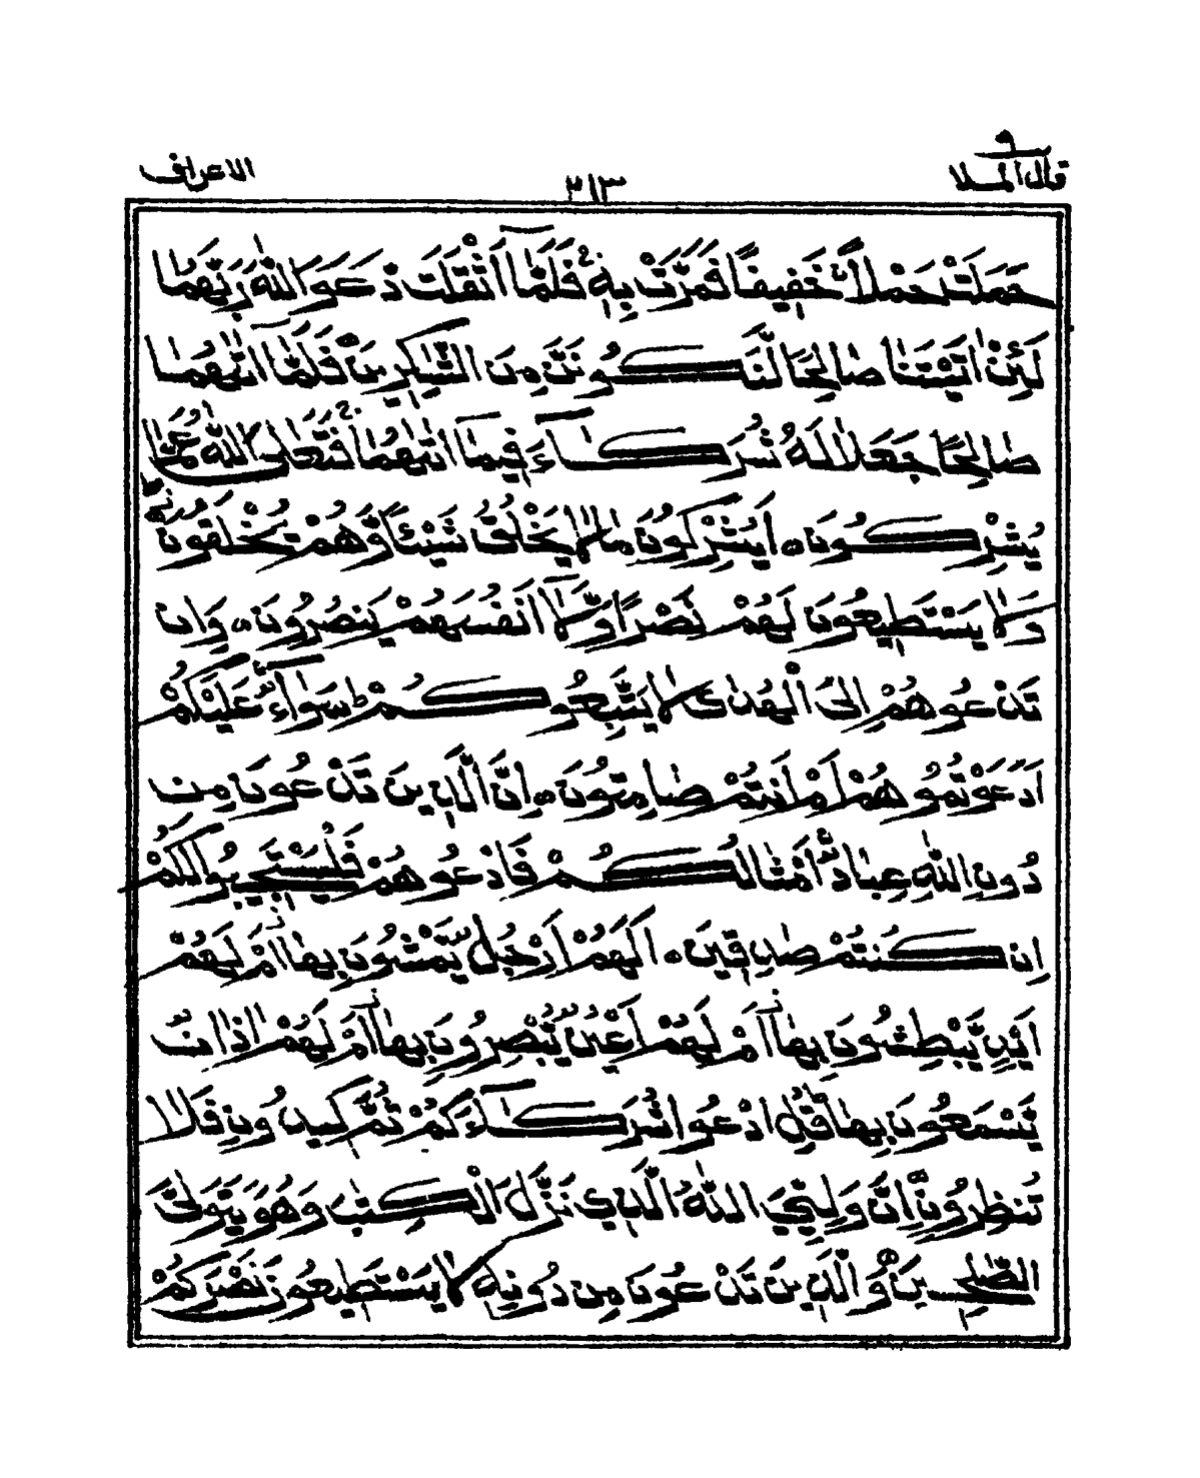 قال الملا ٩
٢١٣
الاعراف
حَمَلَتْ حَمْلًا خَفِيفًا فَمَرَّتْ بِهٖ فَلَمَّآ اَثْقَلَتْ دَّعَوَا اللّٰهَ رَبَّهُمَا
لَئِنْ اٰتَيْتَنَا صَالِحًا لَّنَكُونَنَّ مِنَ الشّٰكِرِينَ فَلَمَّآ اٰتٰىهُمَا
صَالِحًا جَعَلَا لَهُ شُرَكَآءَ فِيمَآ اٰتٰىهُمَا فَتَعَالَى اللّٰهُ عَمَّا
يُشْرِكُونَ ۝ اَيُشْرِكُونَ مَا لَا يَخْلُقُ شَيْئًا وَّهُمْ يُخْلَقُونَ
وَلَا يَسْتَطِيعُونَ لَهُمْ نَصْرًا وَّلَآ اَنْفُسَهُمْ يَنْصُرُونَ ۝ وَاِنْ
تَدْعُوهُمْ اِلَى الْهُدٰى لَا يَتَّبِعُوكُمْ ط سَوَآءٌ عَلَيْكُمْ
اَدَعَوْتُمُوهُمْ اَمْ اَنْتُمْ صَامِتُونَ ۝ اِنَّ الَّذِينَ تَدْعُونَ مِنْ
دُونِ اللّٰهِ عِبَادٌ اَمْثَالُكُمْ فَادْعُوهُمْ فَلْيَسْتَجِيبُوا لَكُمْ
اِنْ كُنْتُمْ صَادِقِينَ ۝ اَلَهُمْ اَرْجُلٌ يَّمْشُونَ بِهَا اَمْ لَهُمْ
اَيْدٍ يَّبْطِشُونَ بِهَآ اَمْ لَهُمْ اَعْيُنٌ يُّبْصِرُونَ بِهَآ اَمْ لَهُمْ اٰذَانٌ
يَّسْمَعُونَ بِهَا قُلِ ادْعُوا شُرَكَآءَكُمْ ثُمَّ كِيدُونِ فَلَا
تُنْظِرُونِ اِنَّ وَلِيِّيَ اللّٰهُ الَّذِي نَزَّلَ الْكِتٰبَ وَهُوَ يَتَوَلَّى
الصّٰلِحِينَ وَالَّذِينَ تَدْعُونَ مِنْ دُونِهٖ لَا يَسْتَطِيعُونَ نَصْرَكُمْ